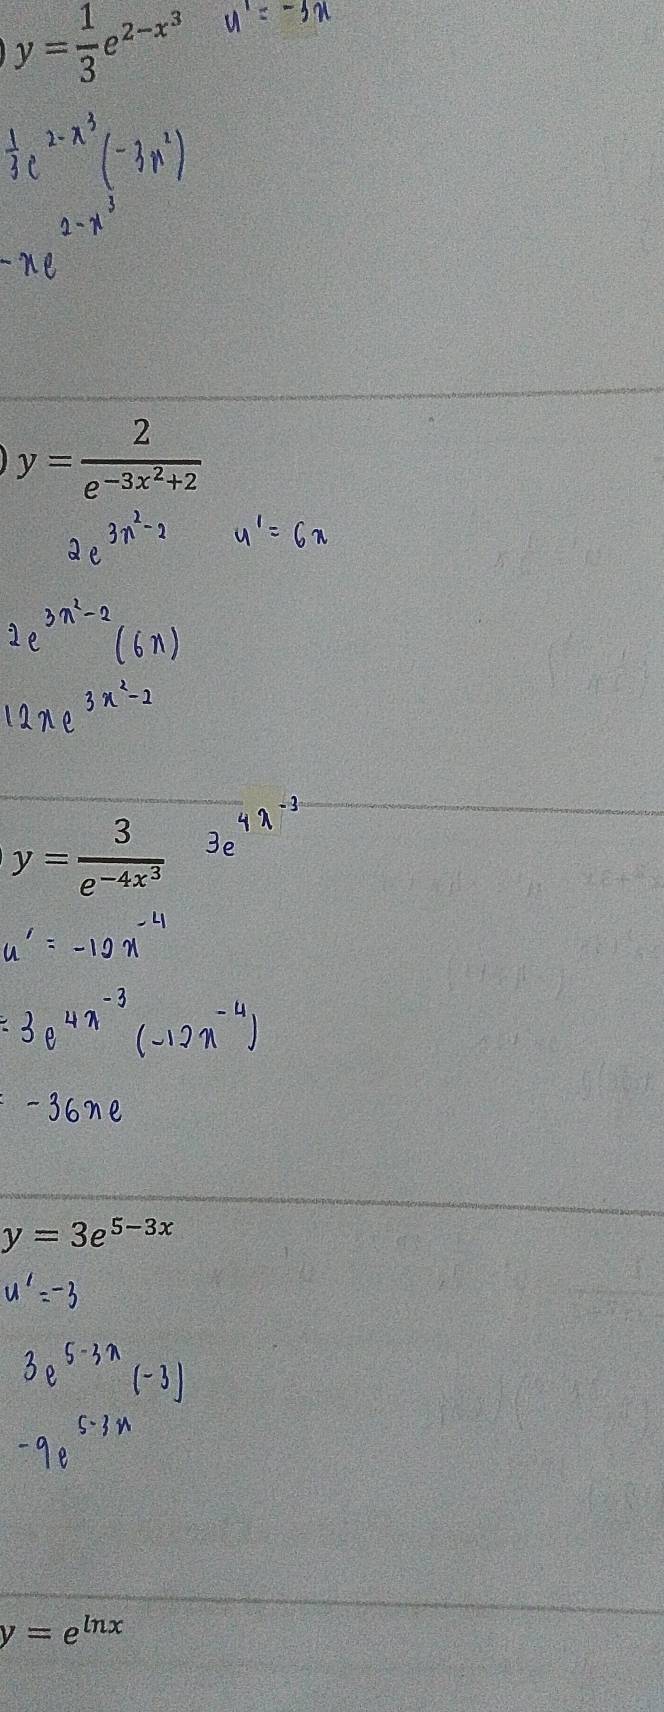 ) y = 1/3 e^{2-x^3} u' = -3x
1/3 e^{2-x^3} (-3x^2)
-xe^{2-x^3}
) y = 2/e^{-3x^2+2}
2e^{3x^2-2} u' = 6x
2e^{3x^2-2} (6x)
12xe^{3x^2-2}
) y = 3/e^{-4x^3} 3e^{4x^{-3}}
u' = -12x^{-4}
= 3e^{4x^{-3}} (-12x^{-4})
= -36xe
y = 3e^{5-3x}
u' = -3
3e^{5-3x} (-3)
-9e^{5-3x}
y = e^{lnx}